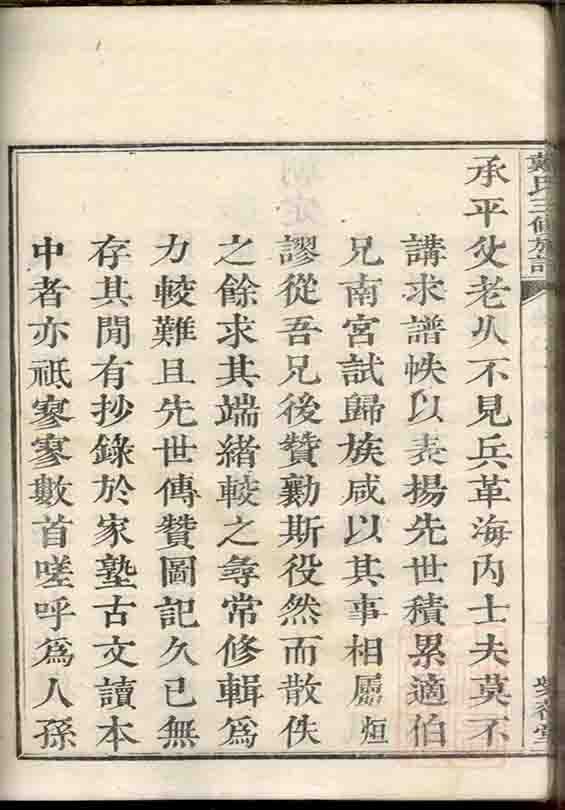 氏三修族譜
承平父老久不見兵革海内士夫莫不
講求譜帙以表揚先世積累適伯
兄南宮試歸族咸以其事相屬烜
謬從吾兄後贊勷斯役然而散佚
之餘求其端緒較之尋常修輯爲
力較難且先世傳贊圖記久已無
存其閒有抄錄於家塾古文讀本
中者亦祇寥寥數首嗟呼爲人孫